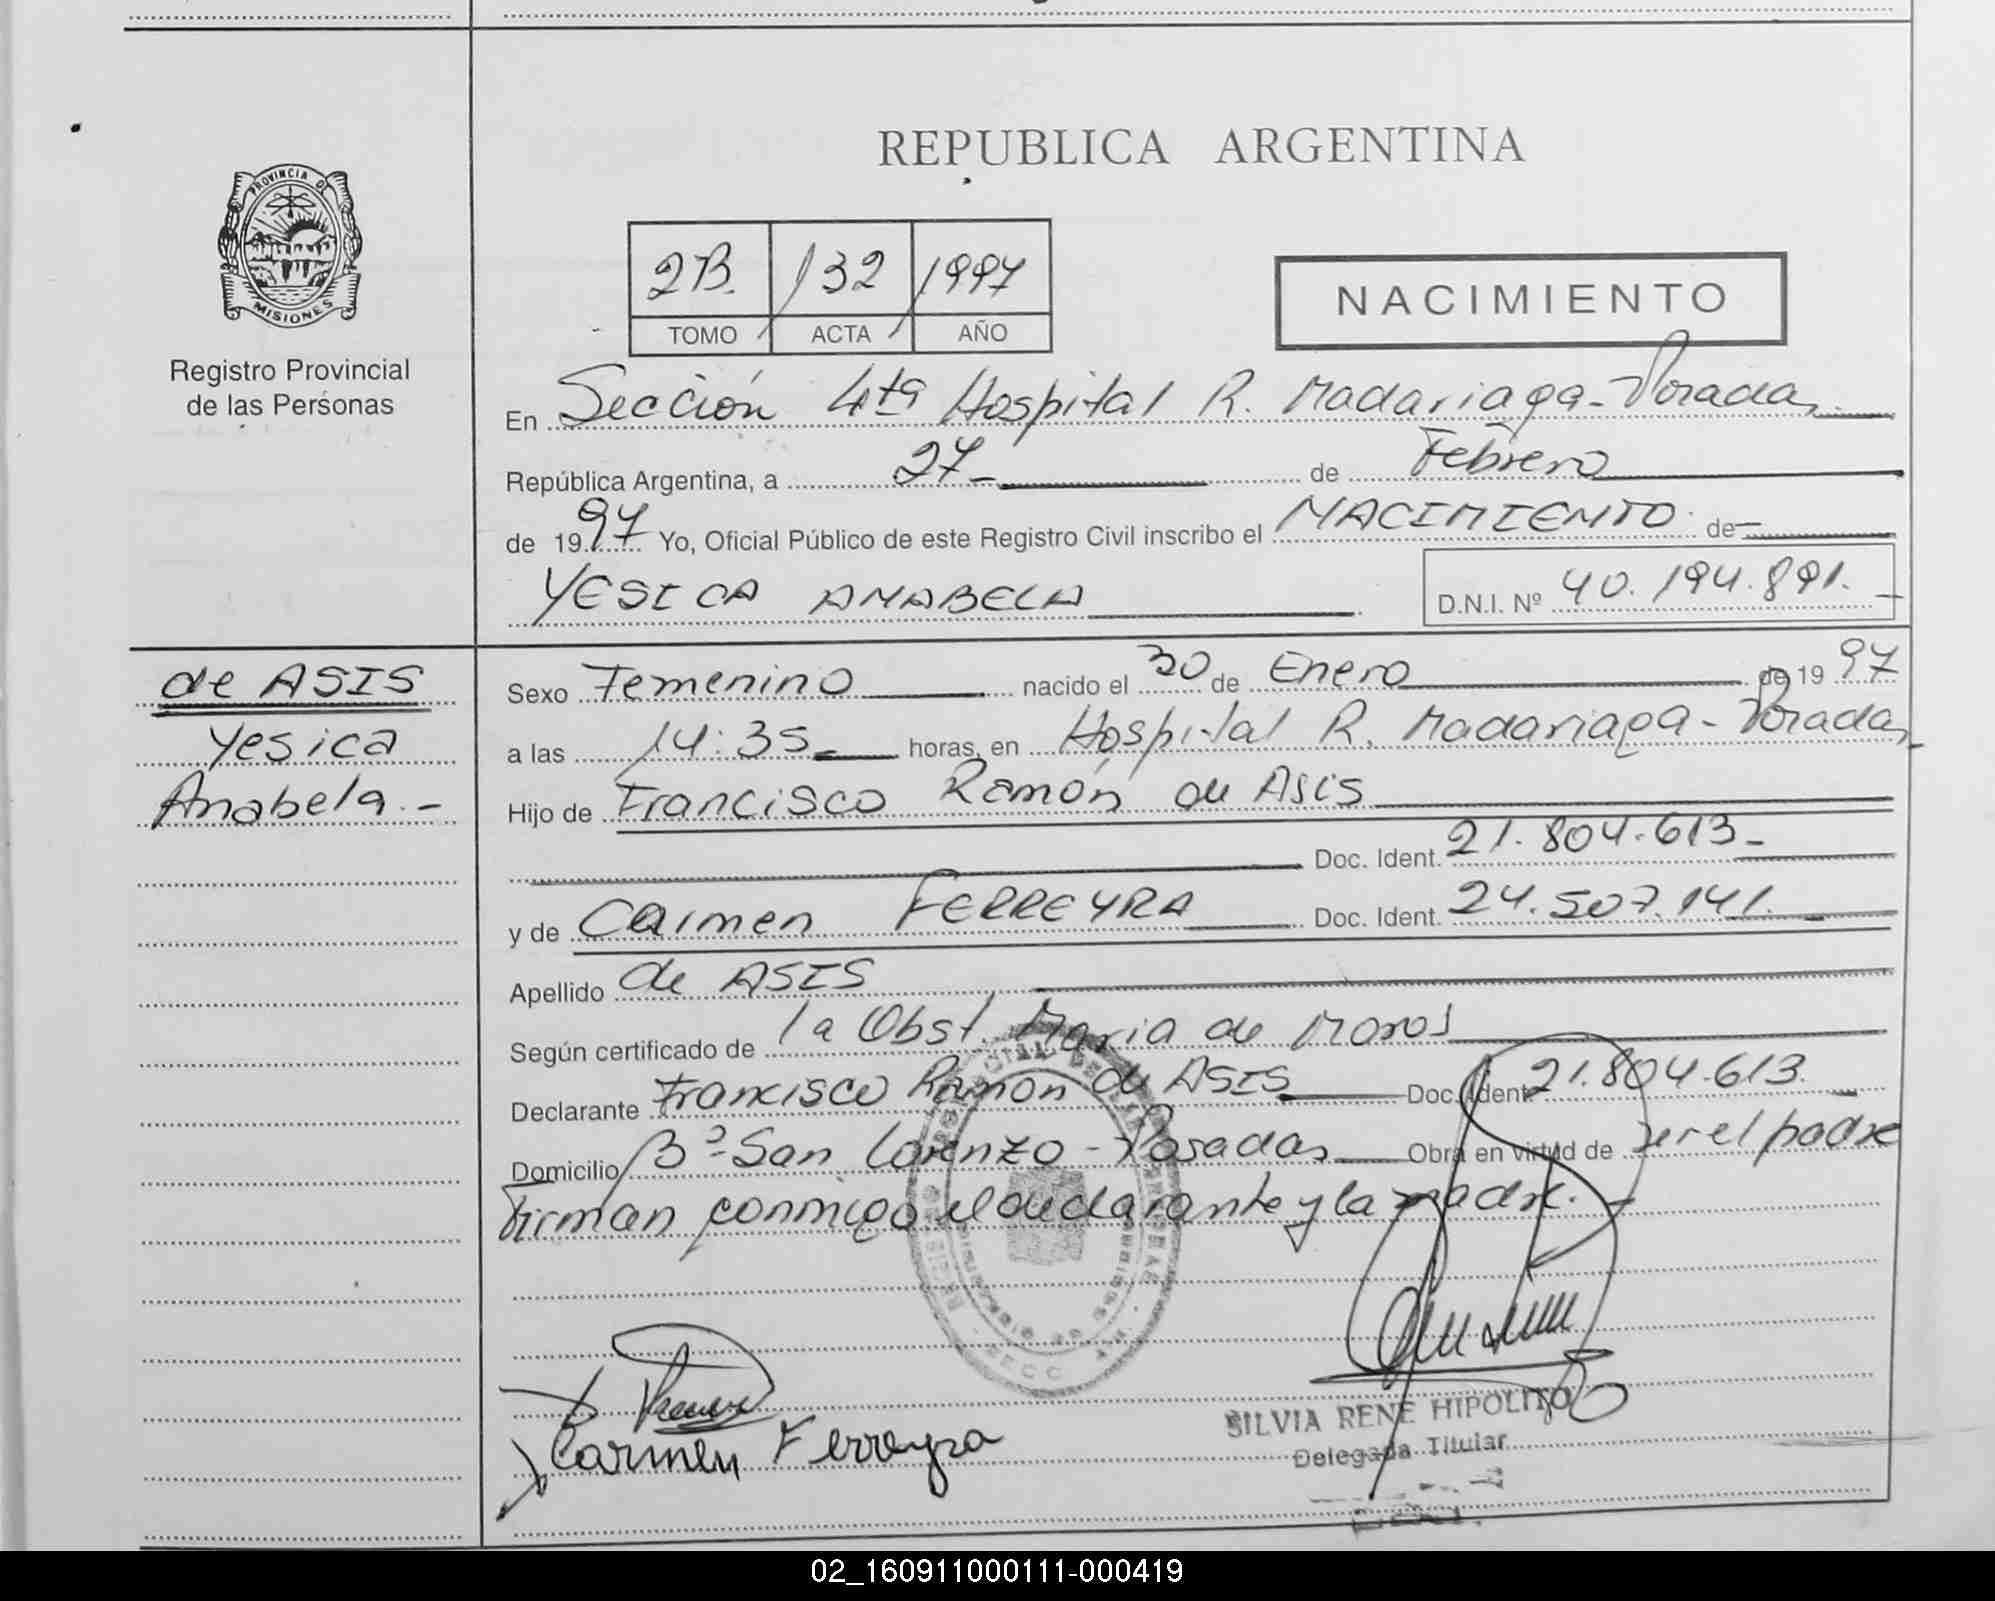 REPUBLICA ARGENTINA
PROVINCIA D
MISIONES
Registro Provincial
de las Personas
2B. 132 1997
TOMO ACTA AÑO
NACIMIENTO
En Sección 4ta Hospital R. Madariaga - Posadas
República Argentina, a 27 de Febrero
de 1997 Yo, Oficial Público de este Registro Civil inscribo el NACIMIENTO de
YESICA ANABELA D.N.I. Nº 40.194.891.
de ASIS
Yesica
Anabela.-
Sexo Femenino nacido el 30 de Enero de 1997
a las 14:35 horas, en Hospital R. Madariaga - Posadas
Hijo de Francisco Ramón de Asis
Doc. Ident. 21.804.613
y de Carmen FERREYRA Doc. Ident. 24.507.141.
Apellido de ASIS
Según certificado de la Obst. Maria de Moros
Declarante Francisco Ramon de ASIS Doc. Ident. 21.804.613.
Domicilio Bº San Lorenzo - Posadas Obra en virtud de ser el padre
Firman conmigo el declarante y la madre.
Carmen Ferreyra
SILVIA RENE HIPOLITO
Delegada Titular
02_160911000111-000419